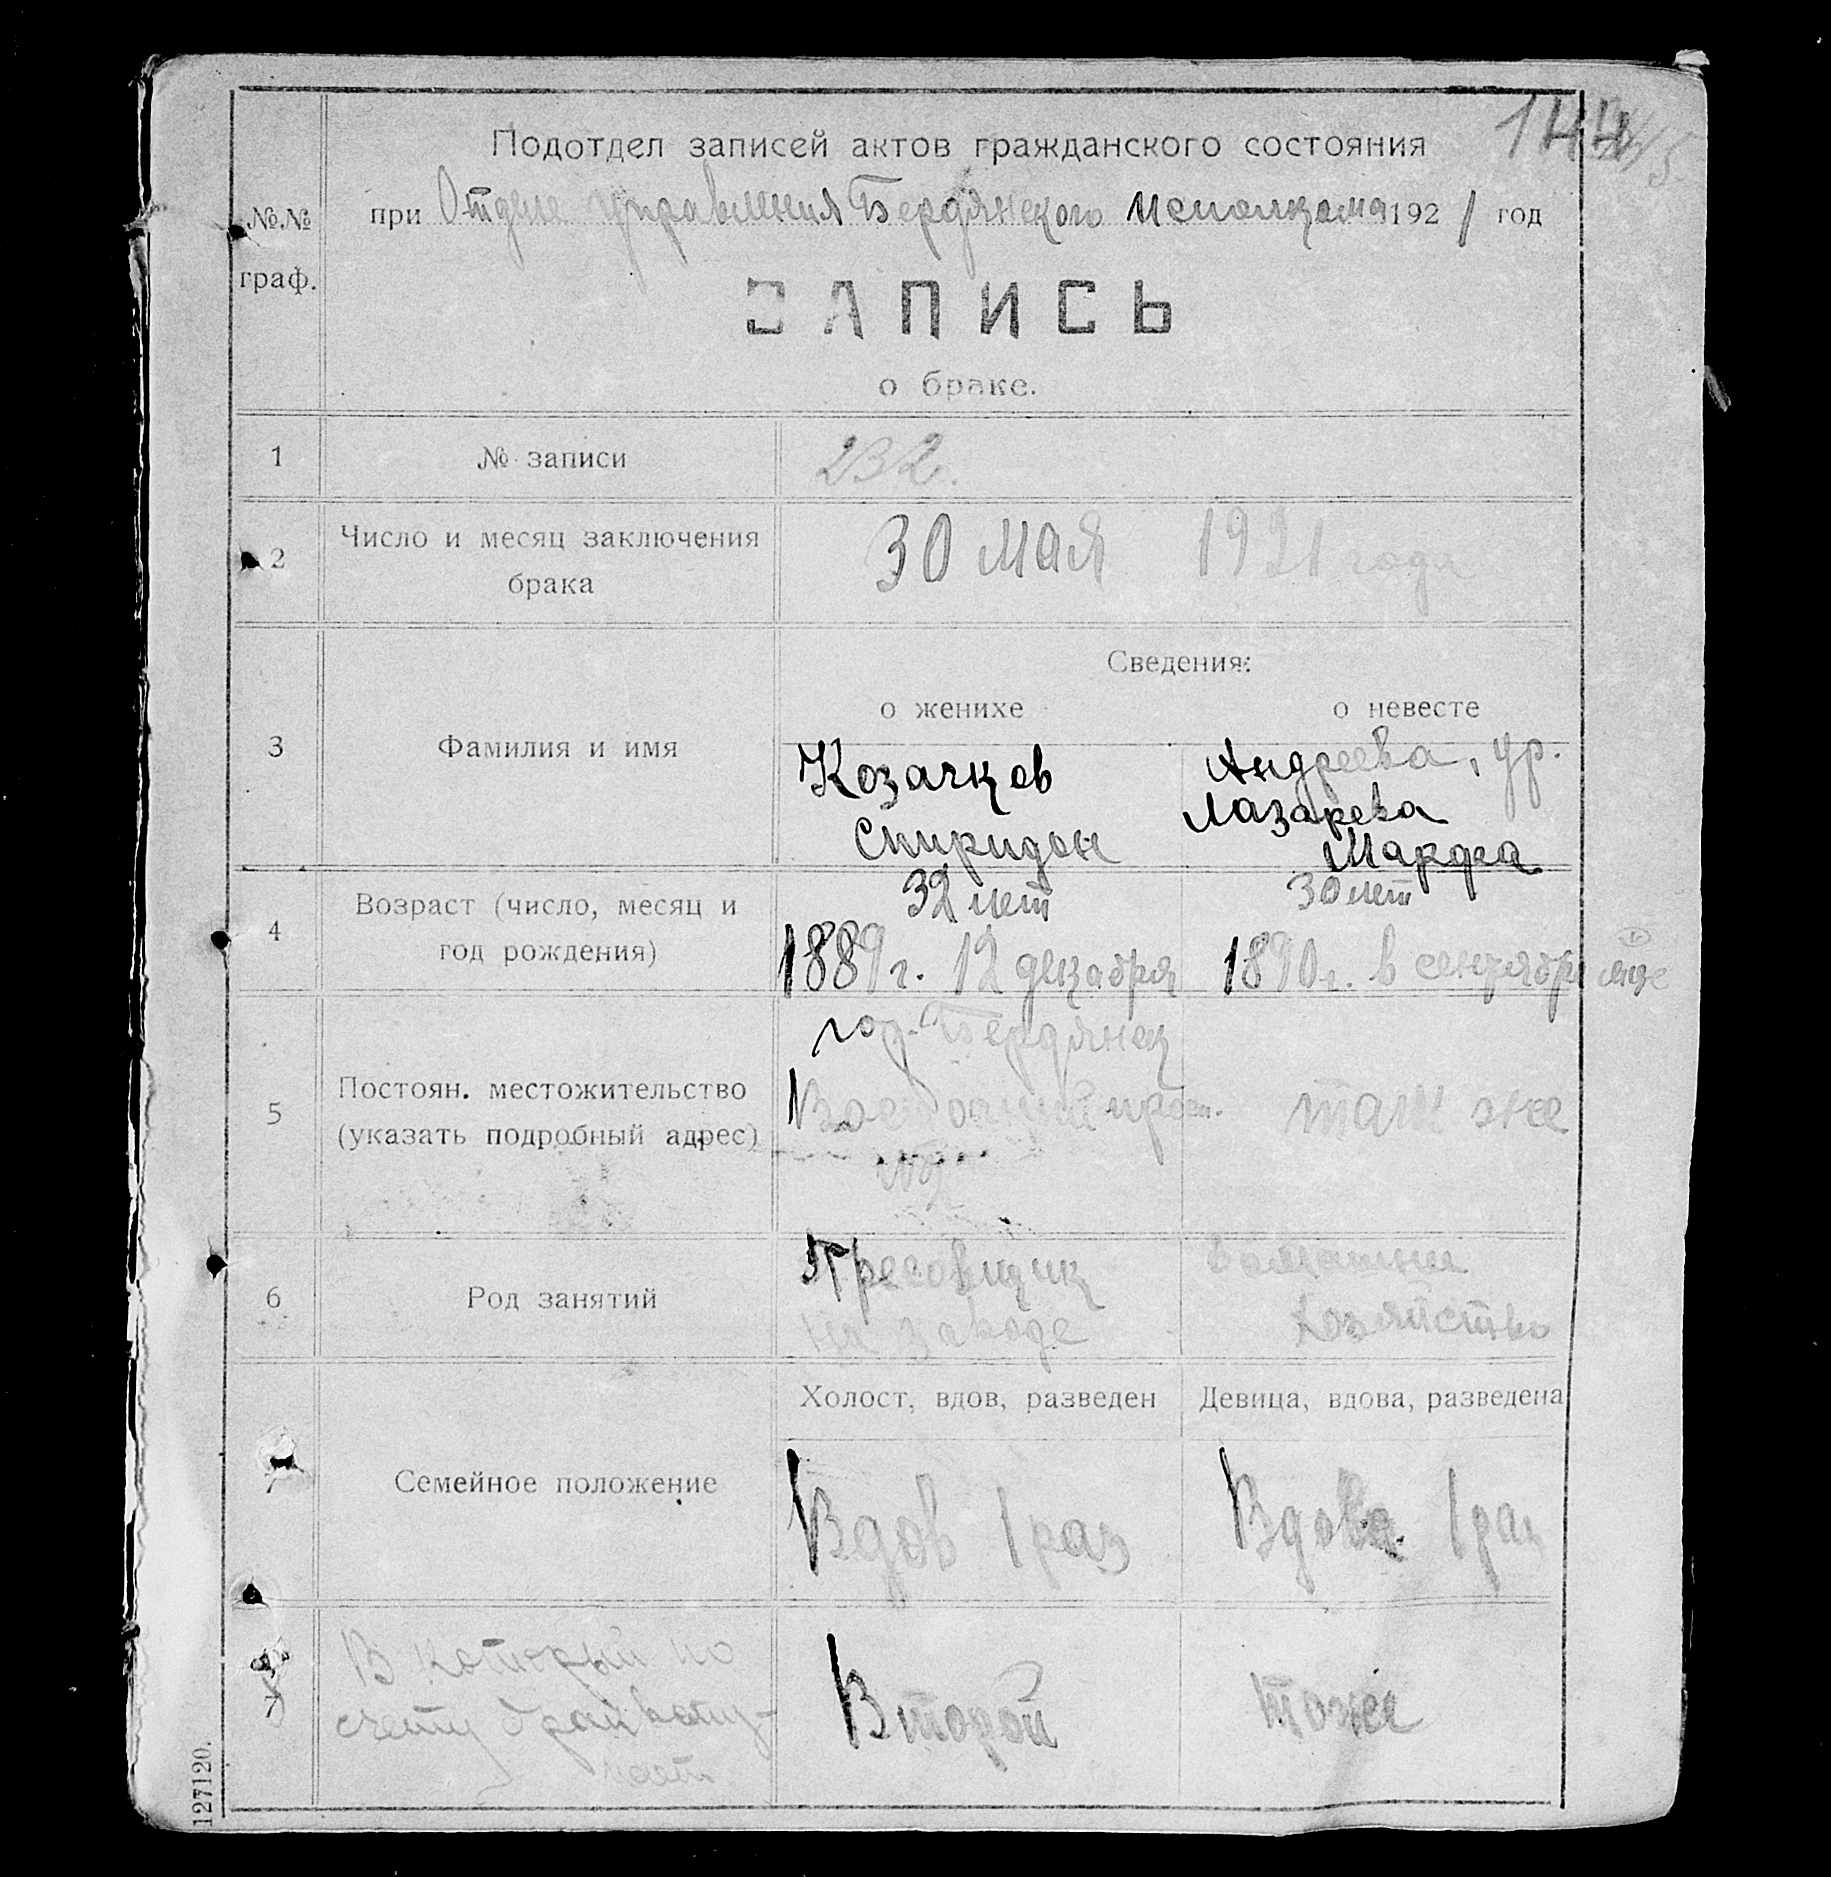 144
Подотдел записей актов гражданского состояния
при Отделе управления Бердянского исполкома 1921 год
№.№ граф.
ЗАПИСЬ
о браке.
1 № записи 232.
2 Число и месяц заключения брака 30 мая 1921 года
Сведения:
о женихе о невесте
3 Фамилия и имя
Козачков Андреева, ур.
Лазарева
Спиридон Марфа
4 Возраст (число, месяц и год рождения)
32 лет 30 лет
1889 г. 12 декабря 1890 г. в сентябре м-це
5 Постоян. местожительство (указать подробный адрес)
гор. Бердянск
просп. там же
6 Род занятий
Пресовщик домашнее
на заводе хозяйство
Холост, вдов, разведен Девица, вдова, разведена
7 Семейное положение
Вдов 1 раз Вдова 1 раз
В который по
счету брак вступ-
Второй тоже
127120.